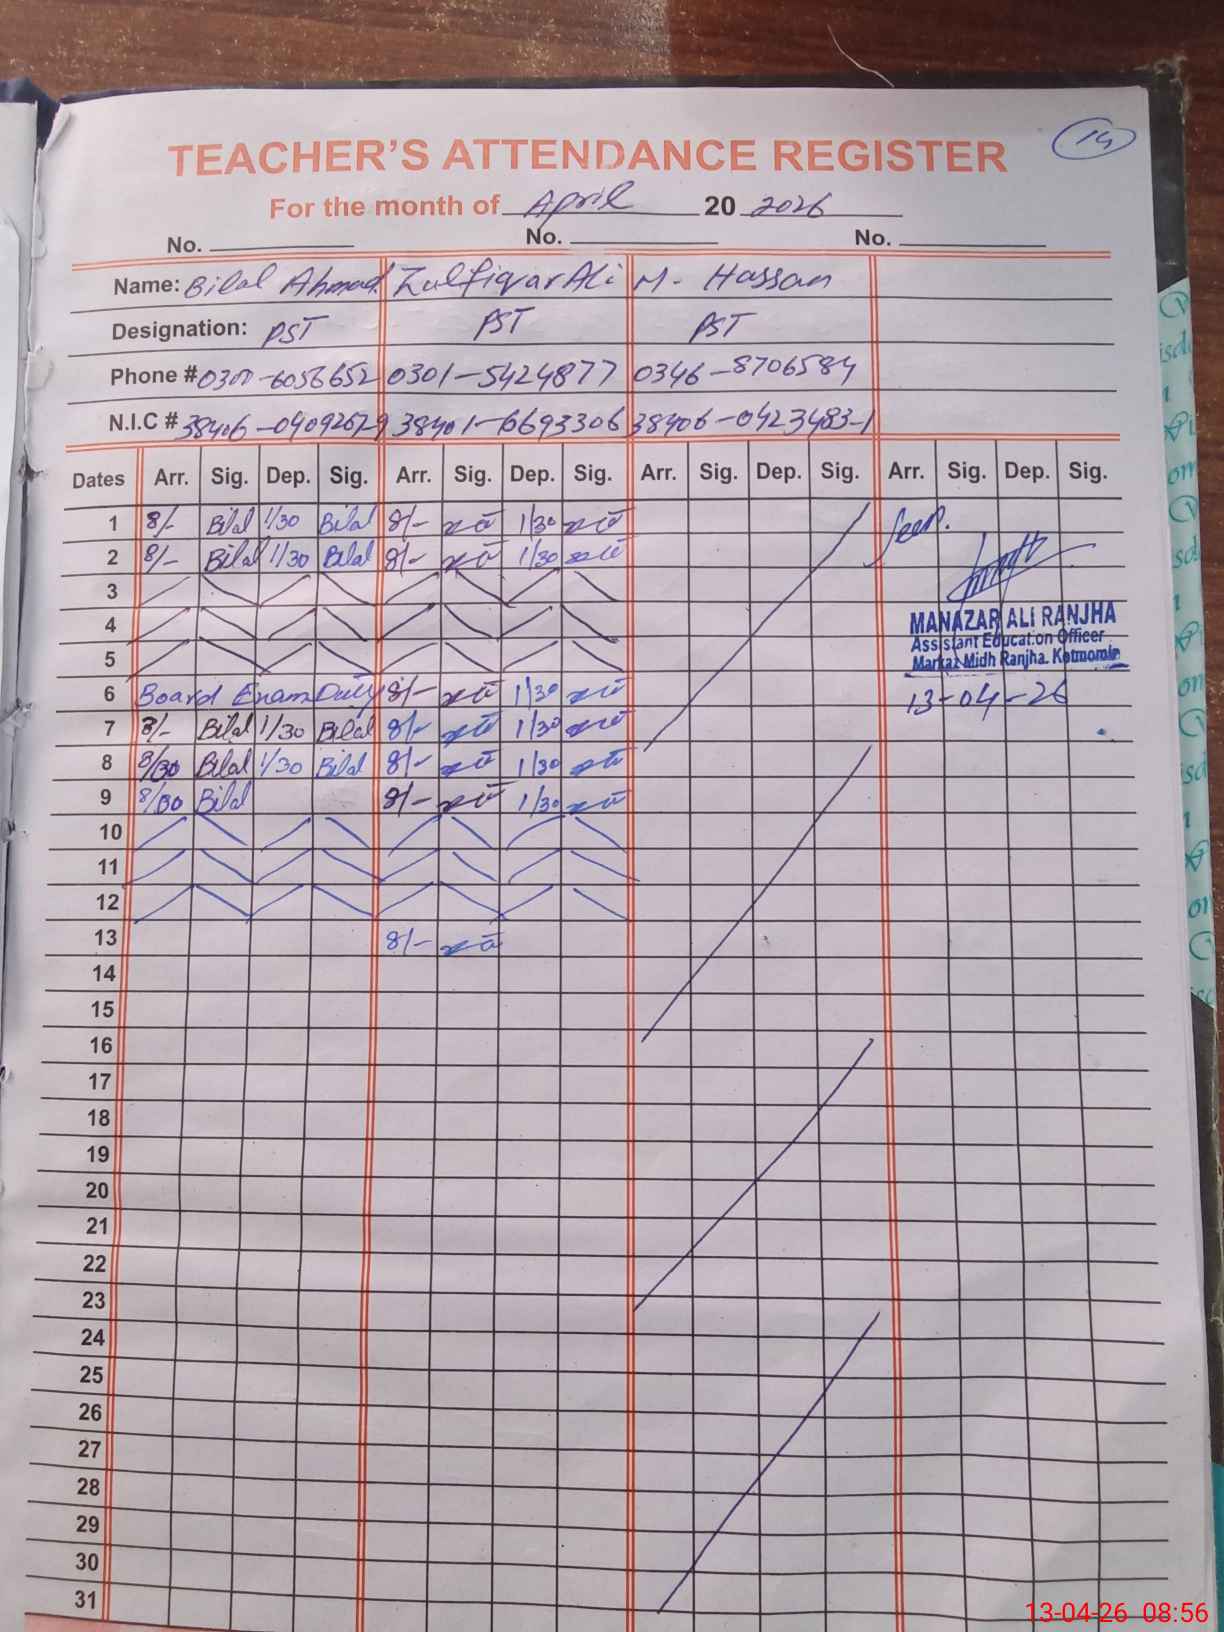 14
TEACHER'S ATTENDANCE REGISTER
For the month of April 20 2026
No. No. No.
Name: Bilal Ahmad Zulfiqar Ali M. Hassan
Designation: PST PST PST
Phone # 0300-6056652 0301-5424877 0346-8706584
N.I.C # 38401-6693306 38406-0423483-1
Dates Arr. Sig. Dep. Sig. Arr. Sig. Dep. Sig. Arr. Sig. Dep. Sig. Arr. Sig. Dep. Sig.
1 8/- Bilal 1/30 Bilal 8/- 1/30 Seen.
2 8/- Bilal 1/30 Bilal 8/- 1/30
3
4
MANAZAR ALI RANJHA
Assistant Education Officer
5
Markaz Midh Ranjha. Kotmomin
6 Board Exam Duty 8/- 1/30 13-04-26
7 8/- Bilal 1/30 Bilal 8/- 1/30
8 8/30 Bilal 1/30 Bilal 8/- 1/30
9 8/30 Bilal 8/- 1/30
10
11
12
13 8/-
14
15
16
17
18
19
20
21
22
23
24
25
26
27
28
29
30
31
13-04-26 08:56